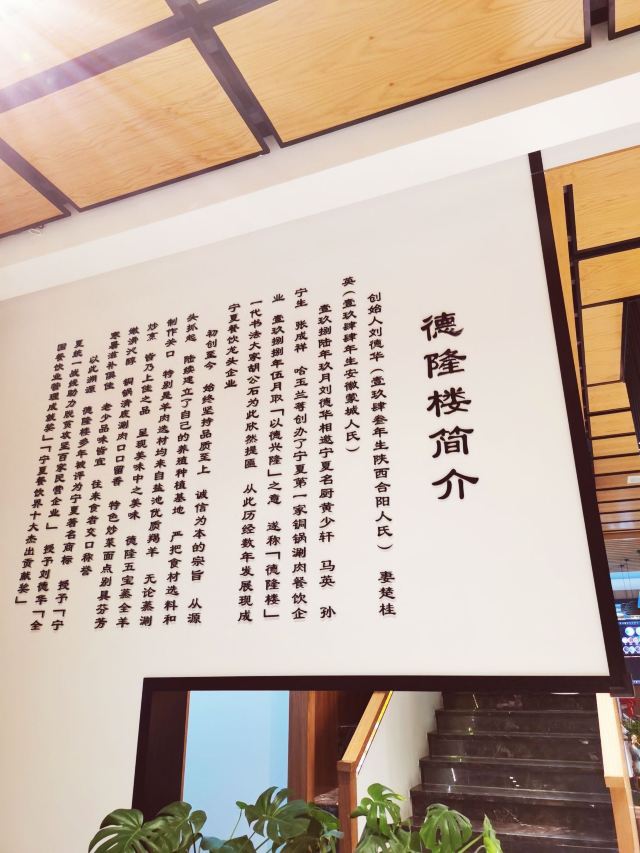 德隆楼简介
创始人刘德华（壹玖肆叁年生陕西合阳人氏） 妻楚桂
英（壹玖肆肆年生安徽蒙城人氏）
壹玖捌陆年玖月刘德华相邀宁夏名厨黄少轩 马英 孙
宁生 张成祥 哈玉兰等创办了宁夏第一家铜锅涮肉餐饮企
业 壹玖捌捌年伍月取「以德兴隆」之意 遂称「德隆楼」
一代书法大家胡公石为此欣然提匾 从此历经数年发展现成
宁夏餐饮龙头企业
初创至今 始终坚持品质至上 诚信为本的宗旨 从源
头抓起 陆续建立了自己的养殖种植基地 严把食材选料和
制作关口 特别是羊肉选材均来自盐池优质羯羊 无论蒸涮
炒烹 皆乃上佳之品 呈现美味中之美味 德隆五宝蒸全羊
嫩滑沁醇 铜锅清底涮肉口口留香 特色炒菜面点别具芬芳
寒暑滋补俱佳 老少品味皆宜 往来食者交口称誉
以此溯源 德隆楼多年被评为宁夏著名商标 授予「宁
夏统一战线助力脱贫攻坚百家民营企业」 授予刘德华「全
国餐饮业管理成就奖」「宁夏餐饮界十大杰出贡献奖」